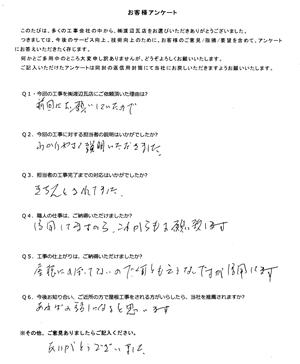 お客様アンケート
このたびは、多くの工事会社の中から、㈱渡辺瓦店をお選びいただきありがとうございました。
つきましては、今後のサービス向上、技術向上のために、お客様のご意見/指摘/要望を含めて、アンケート
にお答えいただきたく存じます。
何かとご多用中のところ大変申し訳ありませんが、どうぞよろしくお願いいたします。
ご記入いただけたアンケートは同封の返信用封筒にて当社にお戻しいただきますようお願いいたします。
Q1・今回の工事を㈱渡辺瓦店にご依頼頂いた理由は？
前回にお願いしていたので
Q2．今回の工事に対する担当者の説明はいかがでしたか？
わかりやすく説明いただきました。
Q3．担当者の工事完了までの対応はいかがでしたか？
きちんとされてました。
Q4．職人の仕事は、ご納得いただけましたか？
信用してますから、これからもお願い致します
Q5．工事の仕上がりは、ご納得いただけましたか？
屋根にのぼってないので何とも言えないですが信用してます
Q6．今後お知り合い、ご近所の方で屋根工事をされる方がいらしたら、当社を推薦されますか？
あればお話しになると思います
※その他、ご意見ありましたらご記入ください。
ありがとうございました